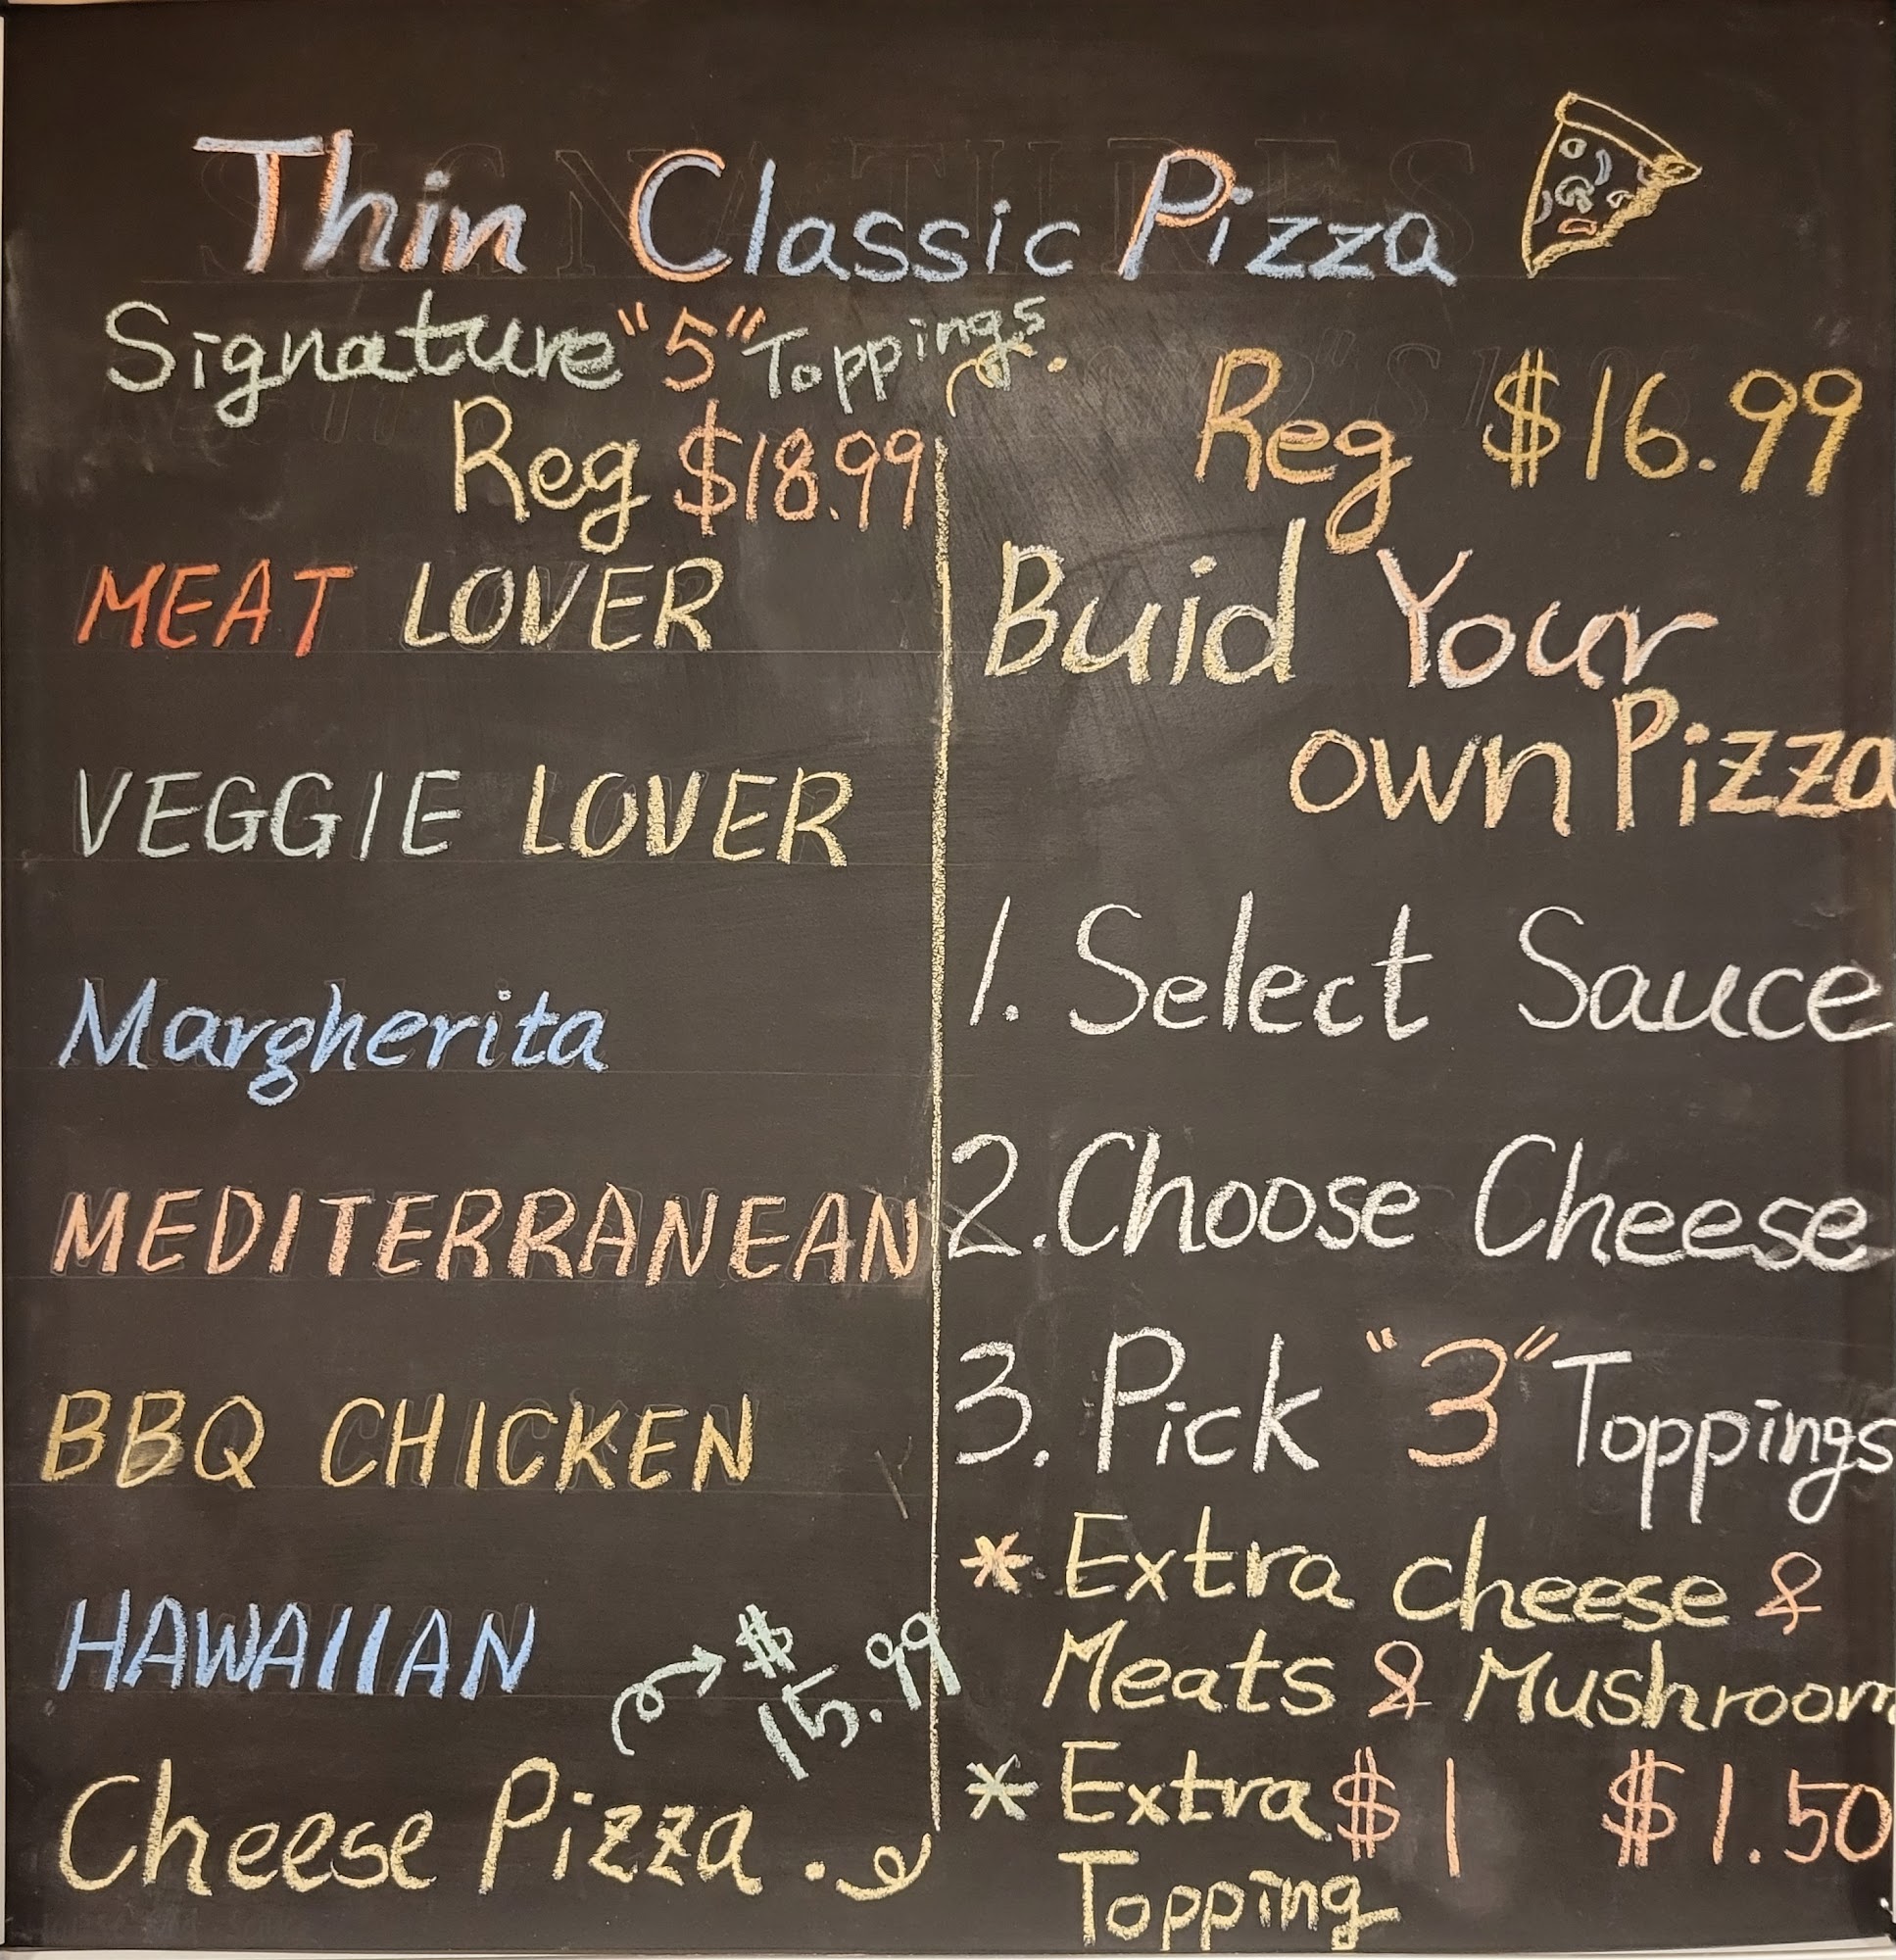 Thin Classic Pizza
Signature "5" Toppings.
Reg $18.99
MEAT LOVER
VEGGIE LOVER
Margherita
MEDITERRANEAN
BBQ CHICKEN
HAWAIIAN
$
15.99
Cheese Pizza.
Reg $16.99
Buid Your
own Pizza
1. Select Sauce
2. Choose Cheese
3. Pick "3" Toppings
* Extra cheese &
Meats & Mushroom
$1.50
* Extra $1
Topping